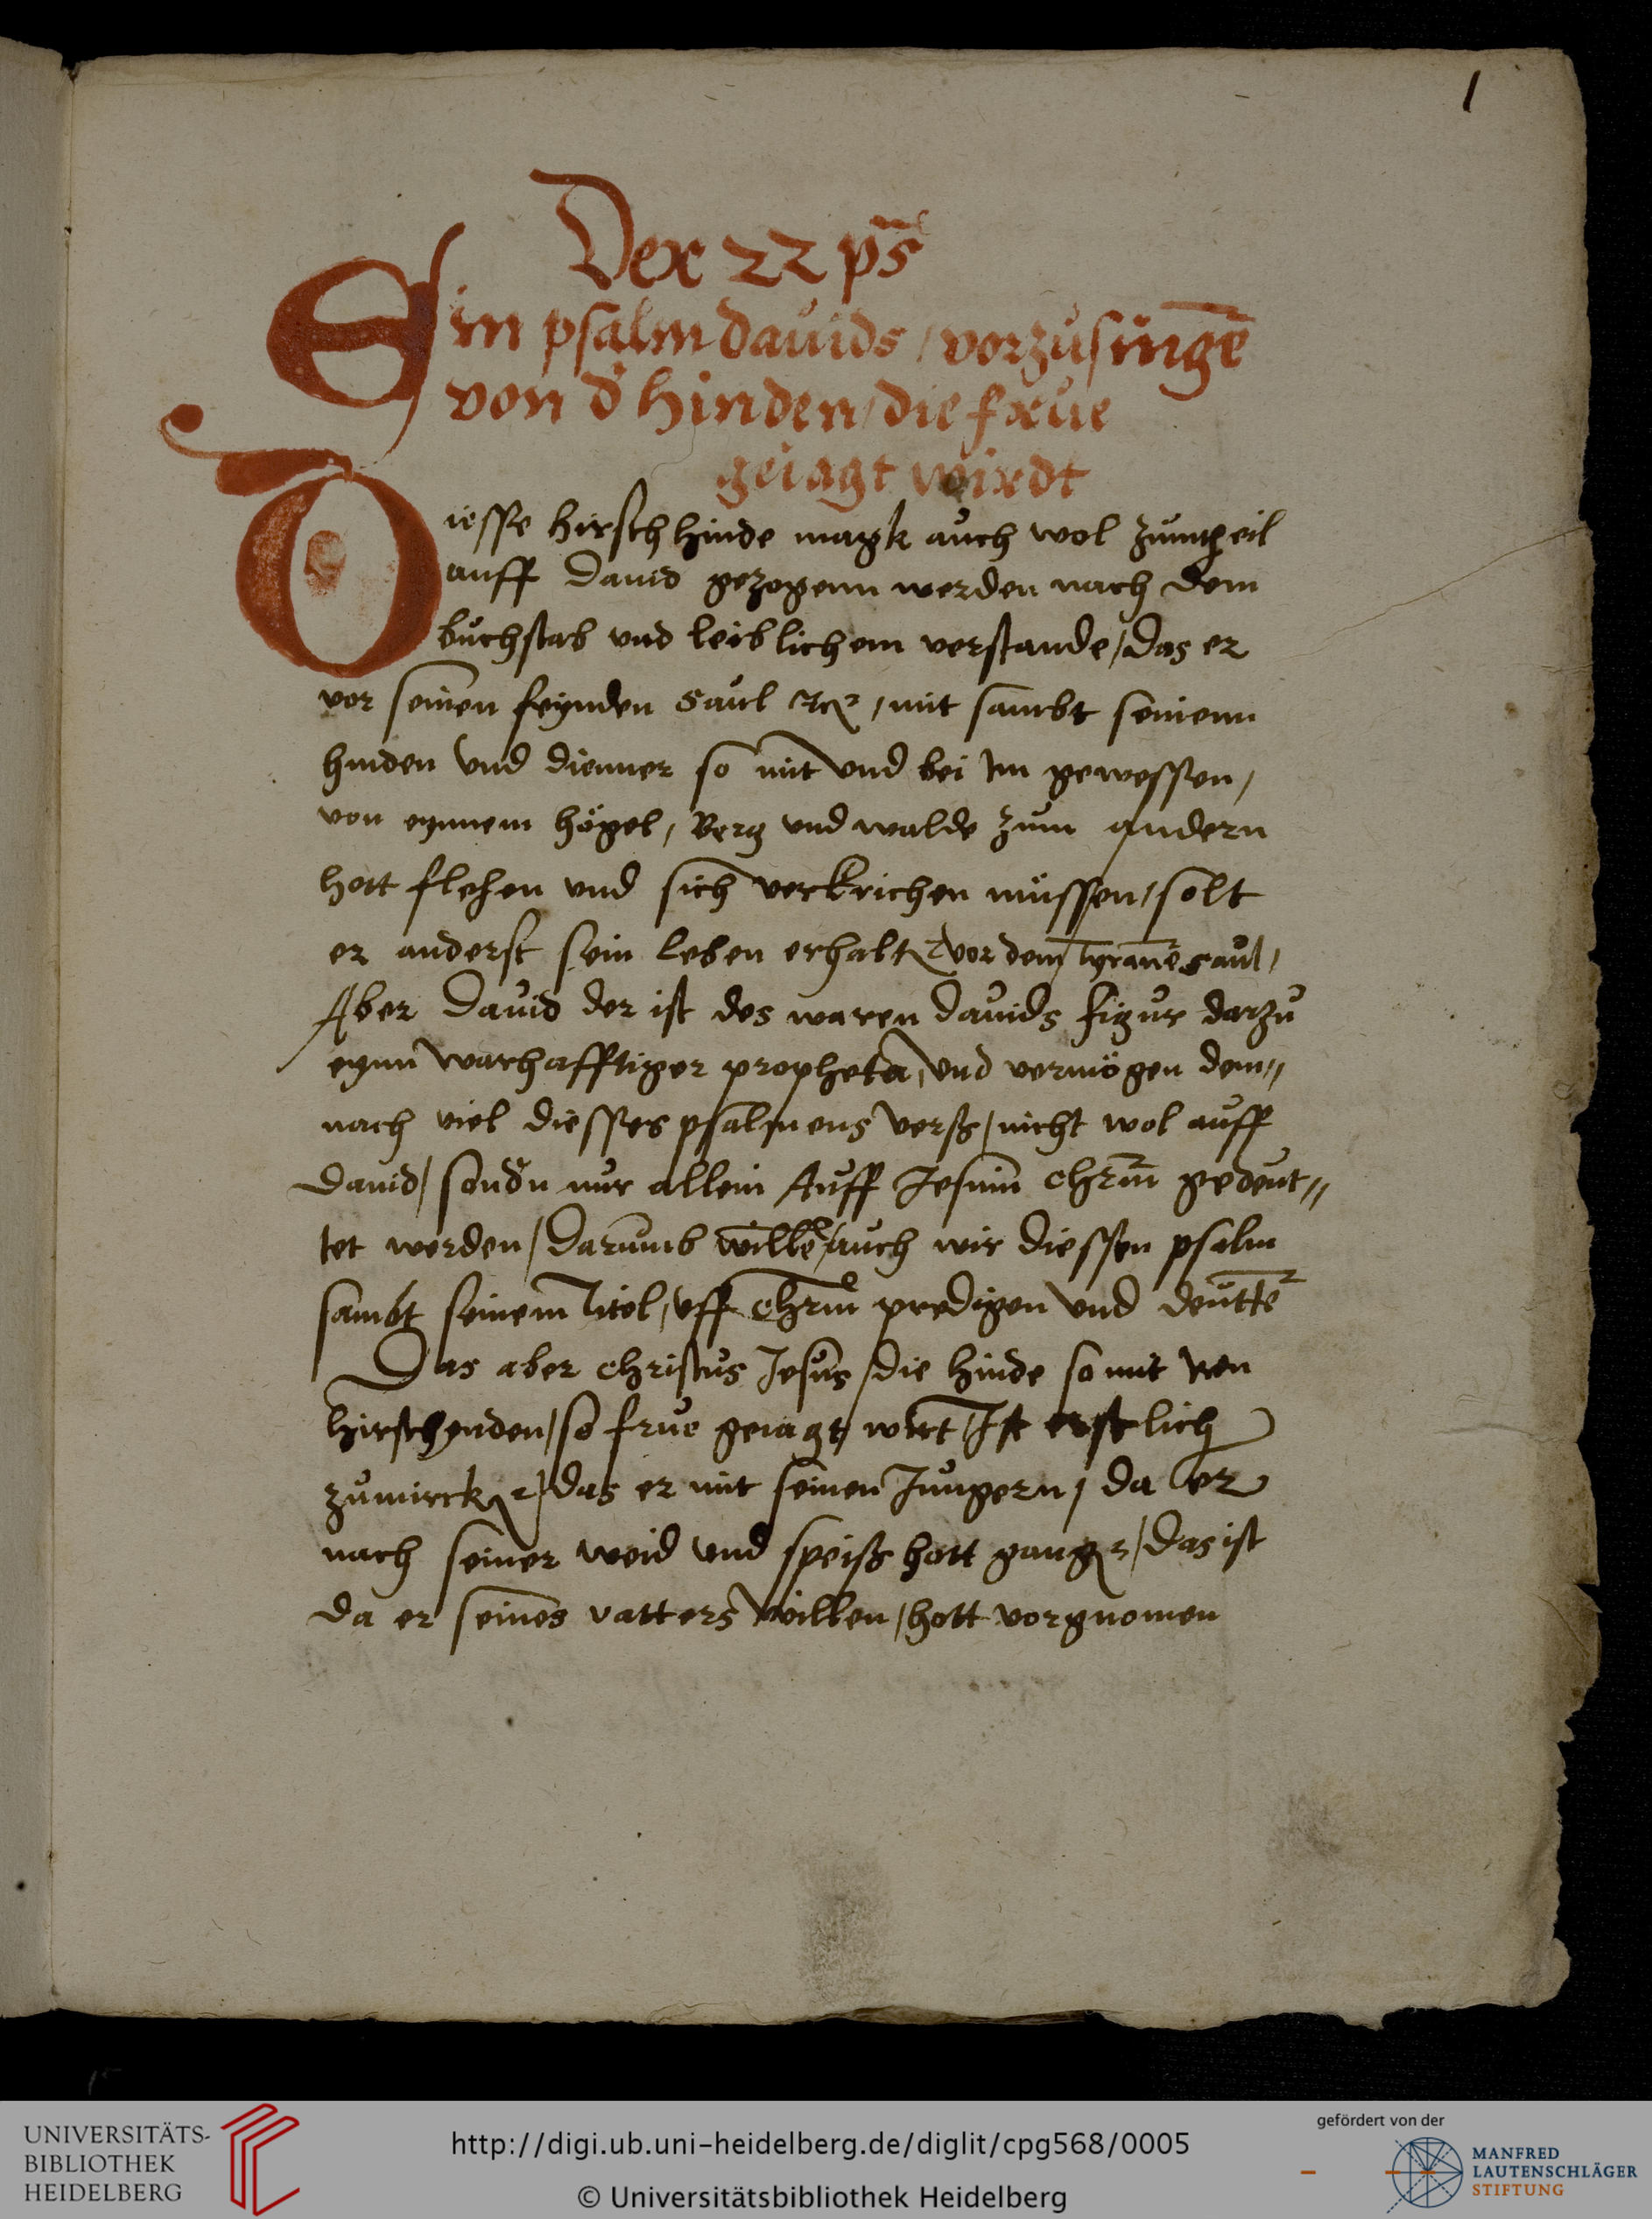 1
Der 22 ps̄
Ein psalm dauids / vorzusingē
von d' hinden / die frue
geiagt wirdt
Diesse hirsch hinde magk auch wol zumtheil
auff Dauid gezogenn werden nach dem
buchstab vnd leiblichem verstande / das er
vor seinen feynden Saul ꝛc / mit sambt seinenn
hinden vnd dienner so mit vnd bei im gewessen /
von eynnem högel, Berg vnd walde zum andern
hott flehen vnd sich verkrichen müssen / solt
er anderst sein leben erhaltē vor dem Tyrannē saul /
Aber Dauid der ist des waren dauids figur darzu
eynn warhafftiger propheta, vnd vermögen dem⸗
nach viel diesses psalmens verß / nicht wol auff
Dauid / sond'n nur allein Auff Jesum chrm̄ gedeut⸗
tet werden / Darumb willē / auch wir diessen psalm
sambt seinem Titel, vff chrm̄ predigen vnd deuttē
Das aber christus Jesus / die hinde so mit den
hirschenden / so frue geiagt wirt / Ist erstlich
zumirckē / das er mit seinen Jungern / da er
nach seiner weid vnd speiß hott gangē / das ist
da er seines vatters willen / hott vorgnomen
UNIVERSITÄTS-
BIBLIOTHEK
HEIDELBERG
http://digi.ub.uni-heidelberg.de/diglit/cpg568/0005
© Universitätsbibliothek Heidelberg
gefördert von der
MANFRED
LAUTENSCHLÄGER
STIFTUNG